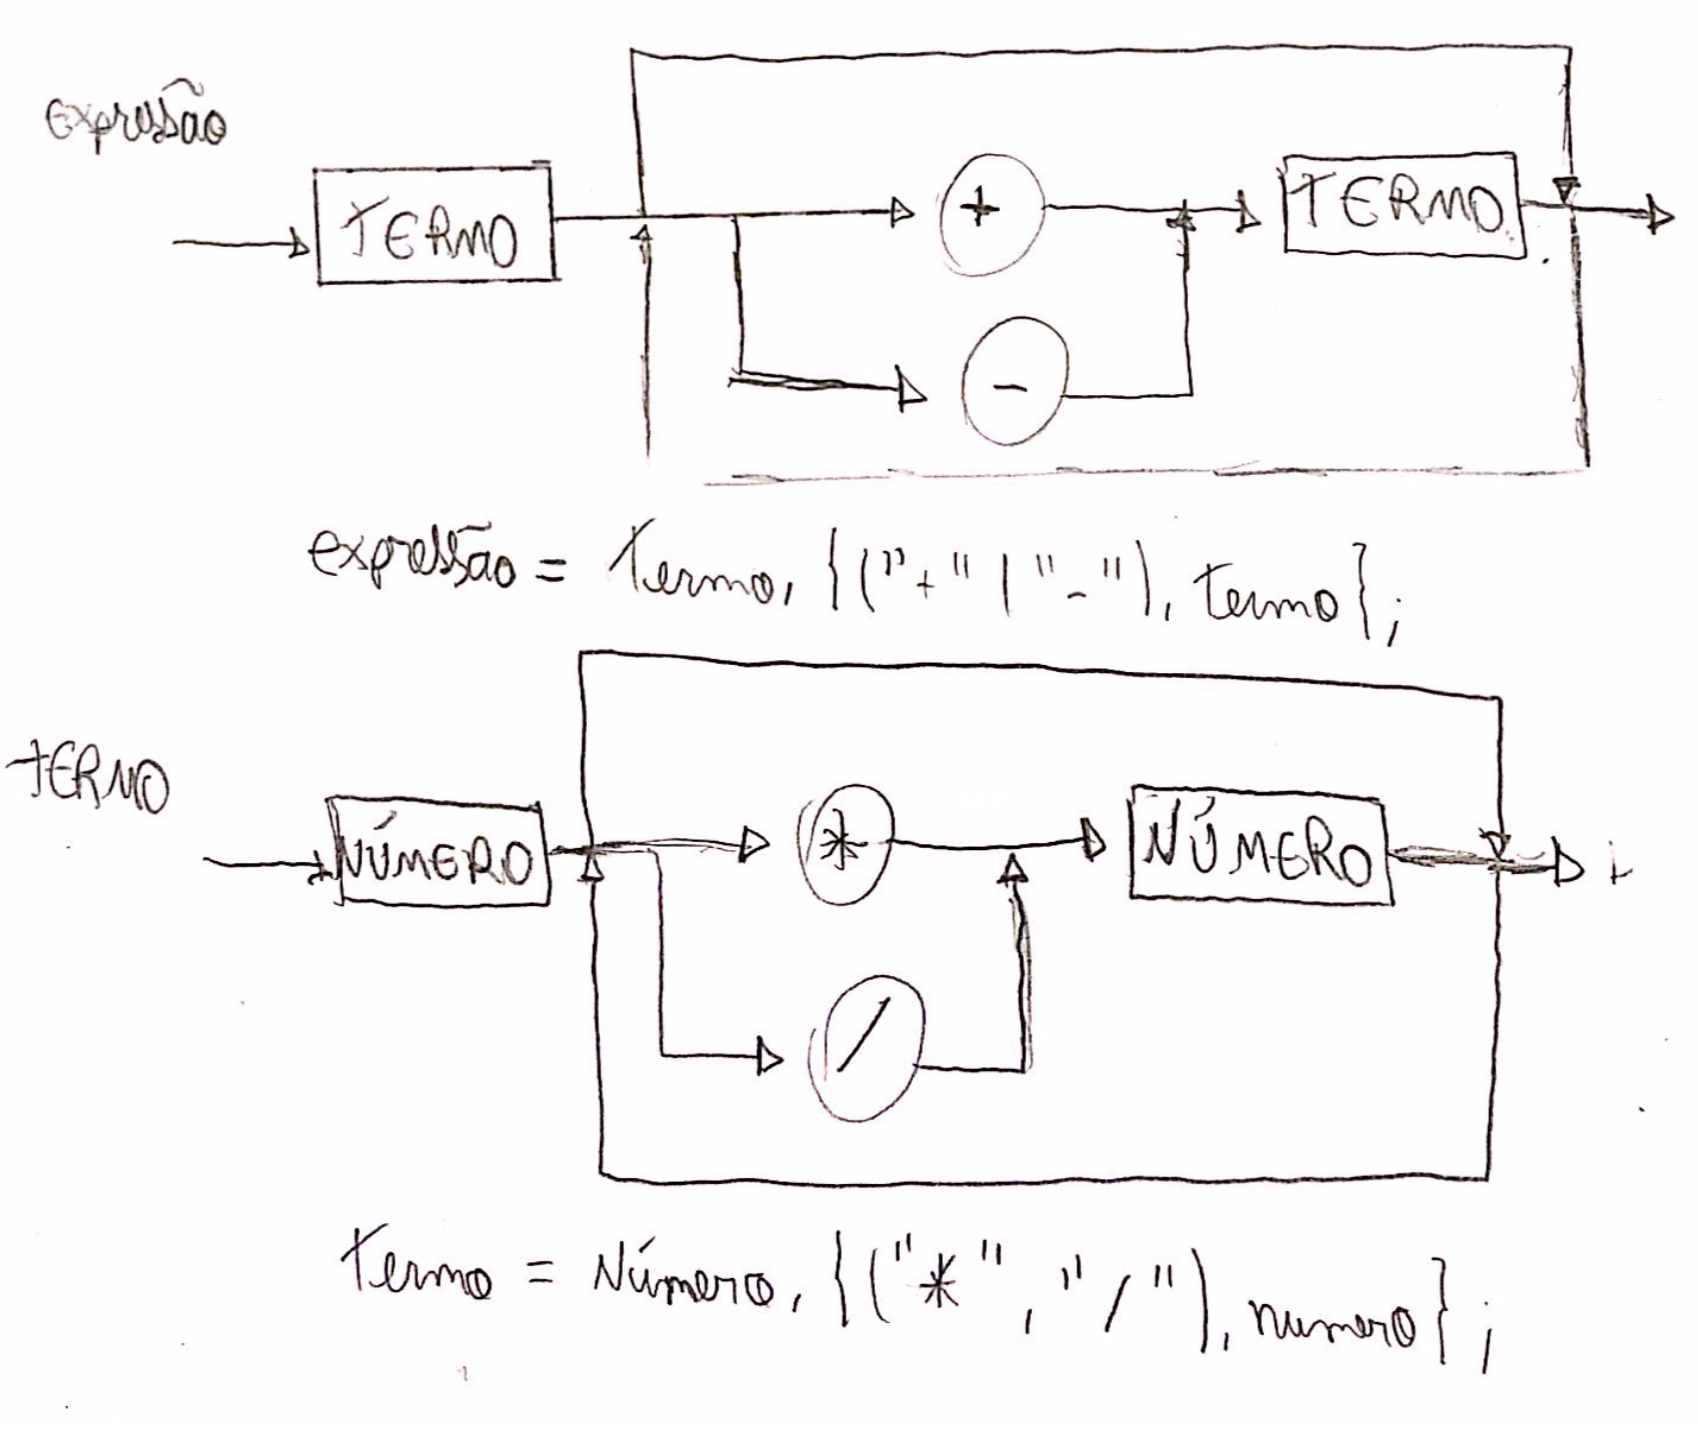 expressão
TERMO
+
TERMO
-
expressão = termo, {("+" | "-"), termo};
TERMO
NÚMERO
*
NÚMERO
/
termo = Número, {("*", "/"), numero};